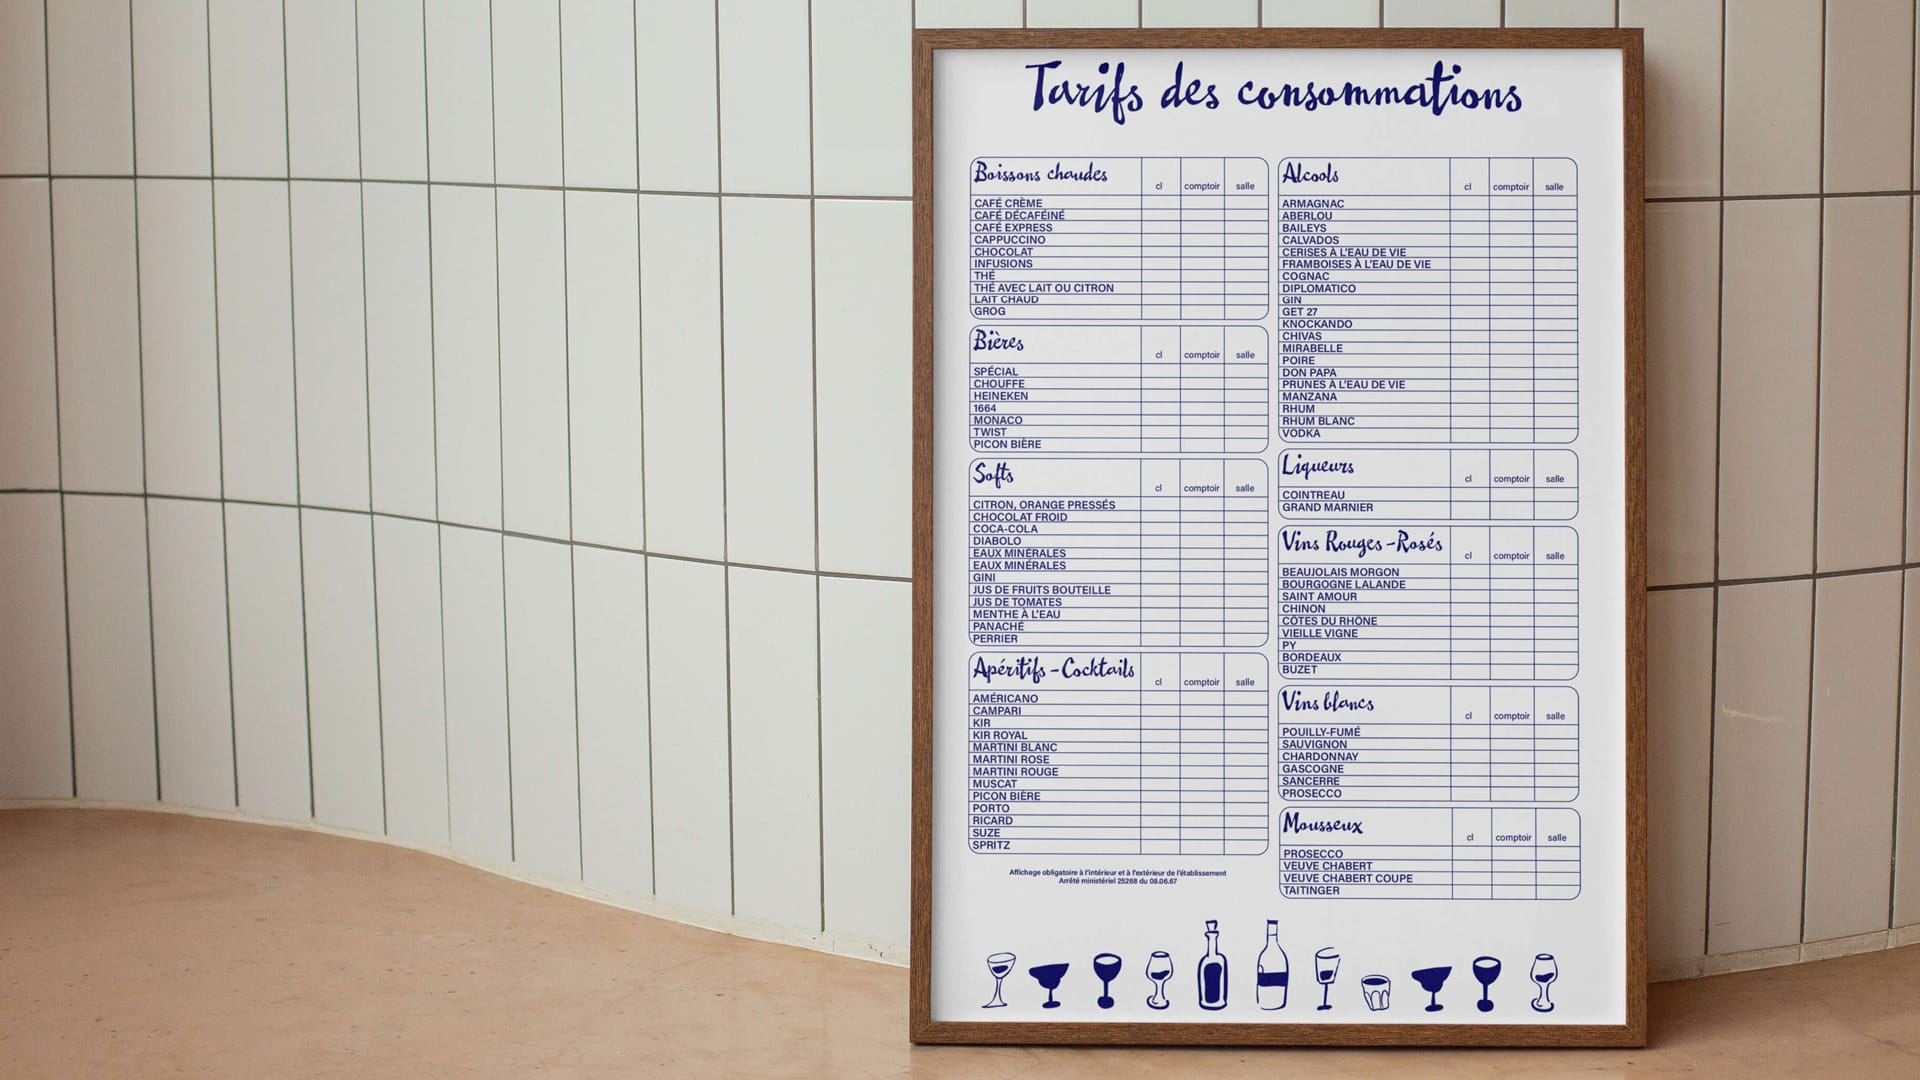 Tarifs des consommations
Boissons chaudes cl comptoir salle
CAFÉ CRÈME
CAFÉ DÉCAFÉINÉ
CAFÉ EXPRESS
CAPPUCCINO
CHOCOLAT
INFUSIONS
THÉ
THÉ AVEC LAIT OU CITRON
LAIT CHAUD
GROG
Bières cl comptoir salle
SPÉCIAL
CHOUFFE
HEINEKEN
1664
MONACO
TWIST
PICON BIÈRE
Softs cl comptoir salle
CITRON, ORANGE PRESSÉS
CHOCOLAT FROID
COCA-COLA
DIABOLO
EAUX MINÉRALES
EAUX MINÉRALES
GINI
JUS DE FRUITS BOUTEILLE
JUS DE TOMATES
MENTHE À L'EAU
PANACHÉ
PERRIER
Apéritifs - Cocktails cl comptoir salle
AMÉRICANO
CAMPARI
KIR
KIR ROYAL
MARTINI BLANC
MARTINI ROSE
MARTINI ROUGE
MUSCAT
PICON BIÈRE
PORTO
RICARD
SUZE
SPRITZ
Affichage obligatoire à l'intérieur et à l'extérieur de l'établissement
Arrêté ministériel 25268 du 08.06.67
Alcools cl comptoir salle
ARMAGNAC
ABERLOU
BAILEYS
CALVADOS
CERISES À L'EAU DE VIE
FRAMBOISES À L'EAU DE VIE
COGNAC
DIPLOMATICO
GIN
GET 27
KNOCKANDO
CHIVAS
MIRABELLE
POIRE
DON PAPA
PRUNES À L'EAU DE VIE
MANZANA
RHUM
RHUM BLANC
VODKA
Liqueurs cl comptoir salle
COINTREAU
GRAND MARNIER
Vins Rouges - Rosés cl comptoir salle
BEAUJOLAIS MORGON
BOURGOGNE LALANDE
SAINT AMOUR
CHINON
CÔTES DU RHÔNE
VIEILLE VIGNE
PY
BORDEAUX
BUZET
Vins blancs cl comptoir salle
POUILLY-FUMÉ
SAUVIGNON
CHARDONNAY
GASCOGNE
SANCERRE
PROSECCO
Mousseux cl comptoir salle
PROSECCO
VEUVE CHABERT
VEUVE CHABERT COUPE
TAITINGER